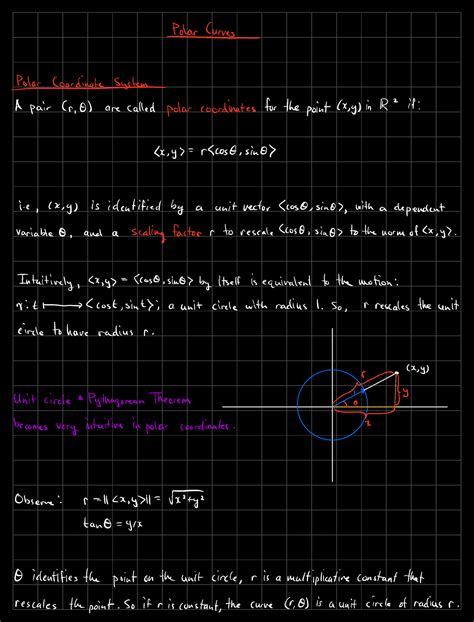 Polar Curves
Polar Coordinate System
A pair (r, θ) are called polar coordinates for the point (x,y) in ℝ² if:
<x,y> = r<cosθ, sinθ>
i.e., (x,y) is identified by a unit vector <cosθ, sinθ>, with a dependent
variable θ, and a scaling factor r to rescale <cosθ, sinθ> to the norm of <x,y>.
Intuitively, <x,y> = <cosθ, sinθ> by itself is equivalent to the motion:
γ: t ↦ <cost, sint>; a unit circle with radius 1. So, r rescales the unit
circle to have radius r.
(x,y)
r
y
1
θ
x
Unit circle & Pythagorean Theorem
becomes very intuitive in polar coordinates.
Observe: r = ||<x,y>|| = √x²+y²
tanθ = y/x
θ identifies the point on the unit circle, r is a multiplicative constant that
rescales the point. So if r is constant, the curve (r, θ) is a unit circle of radius r.